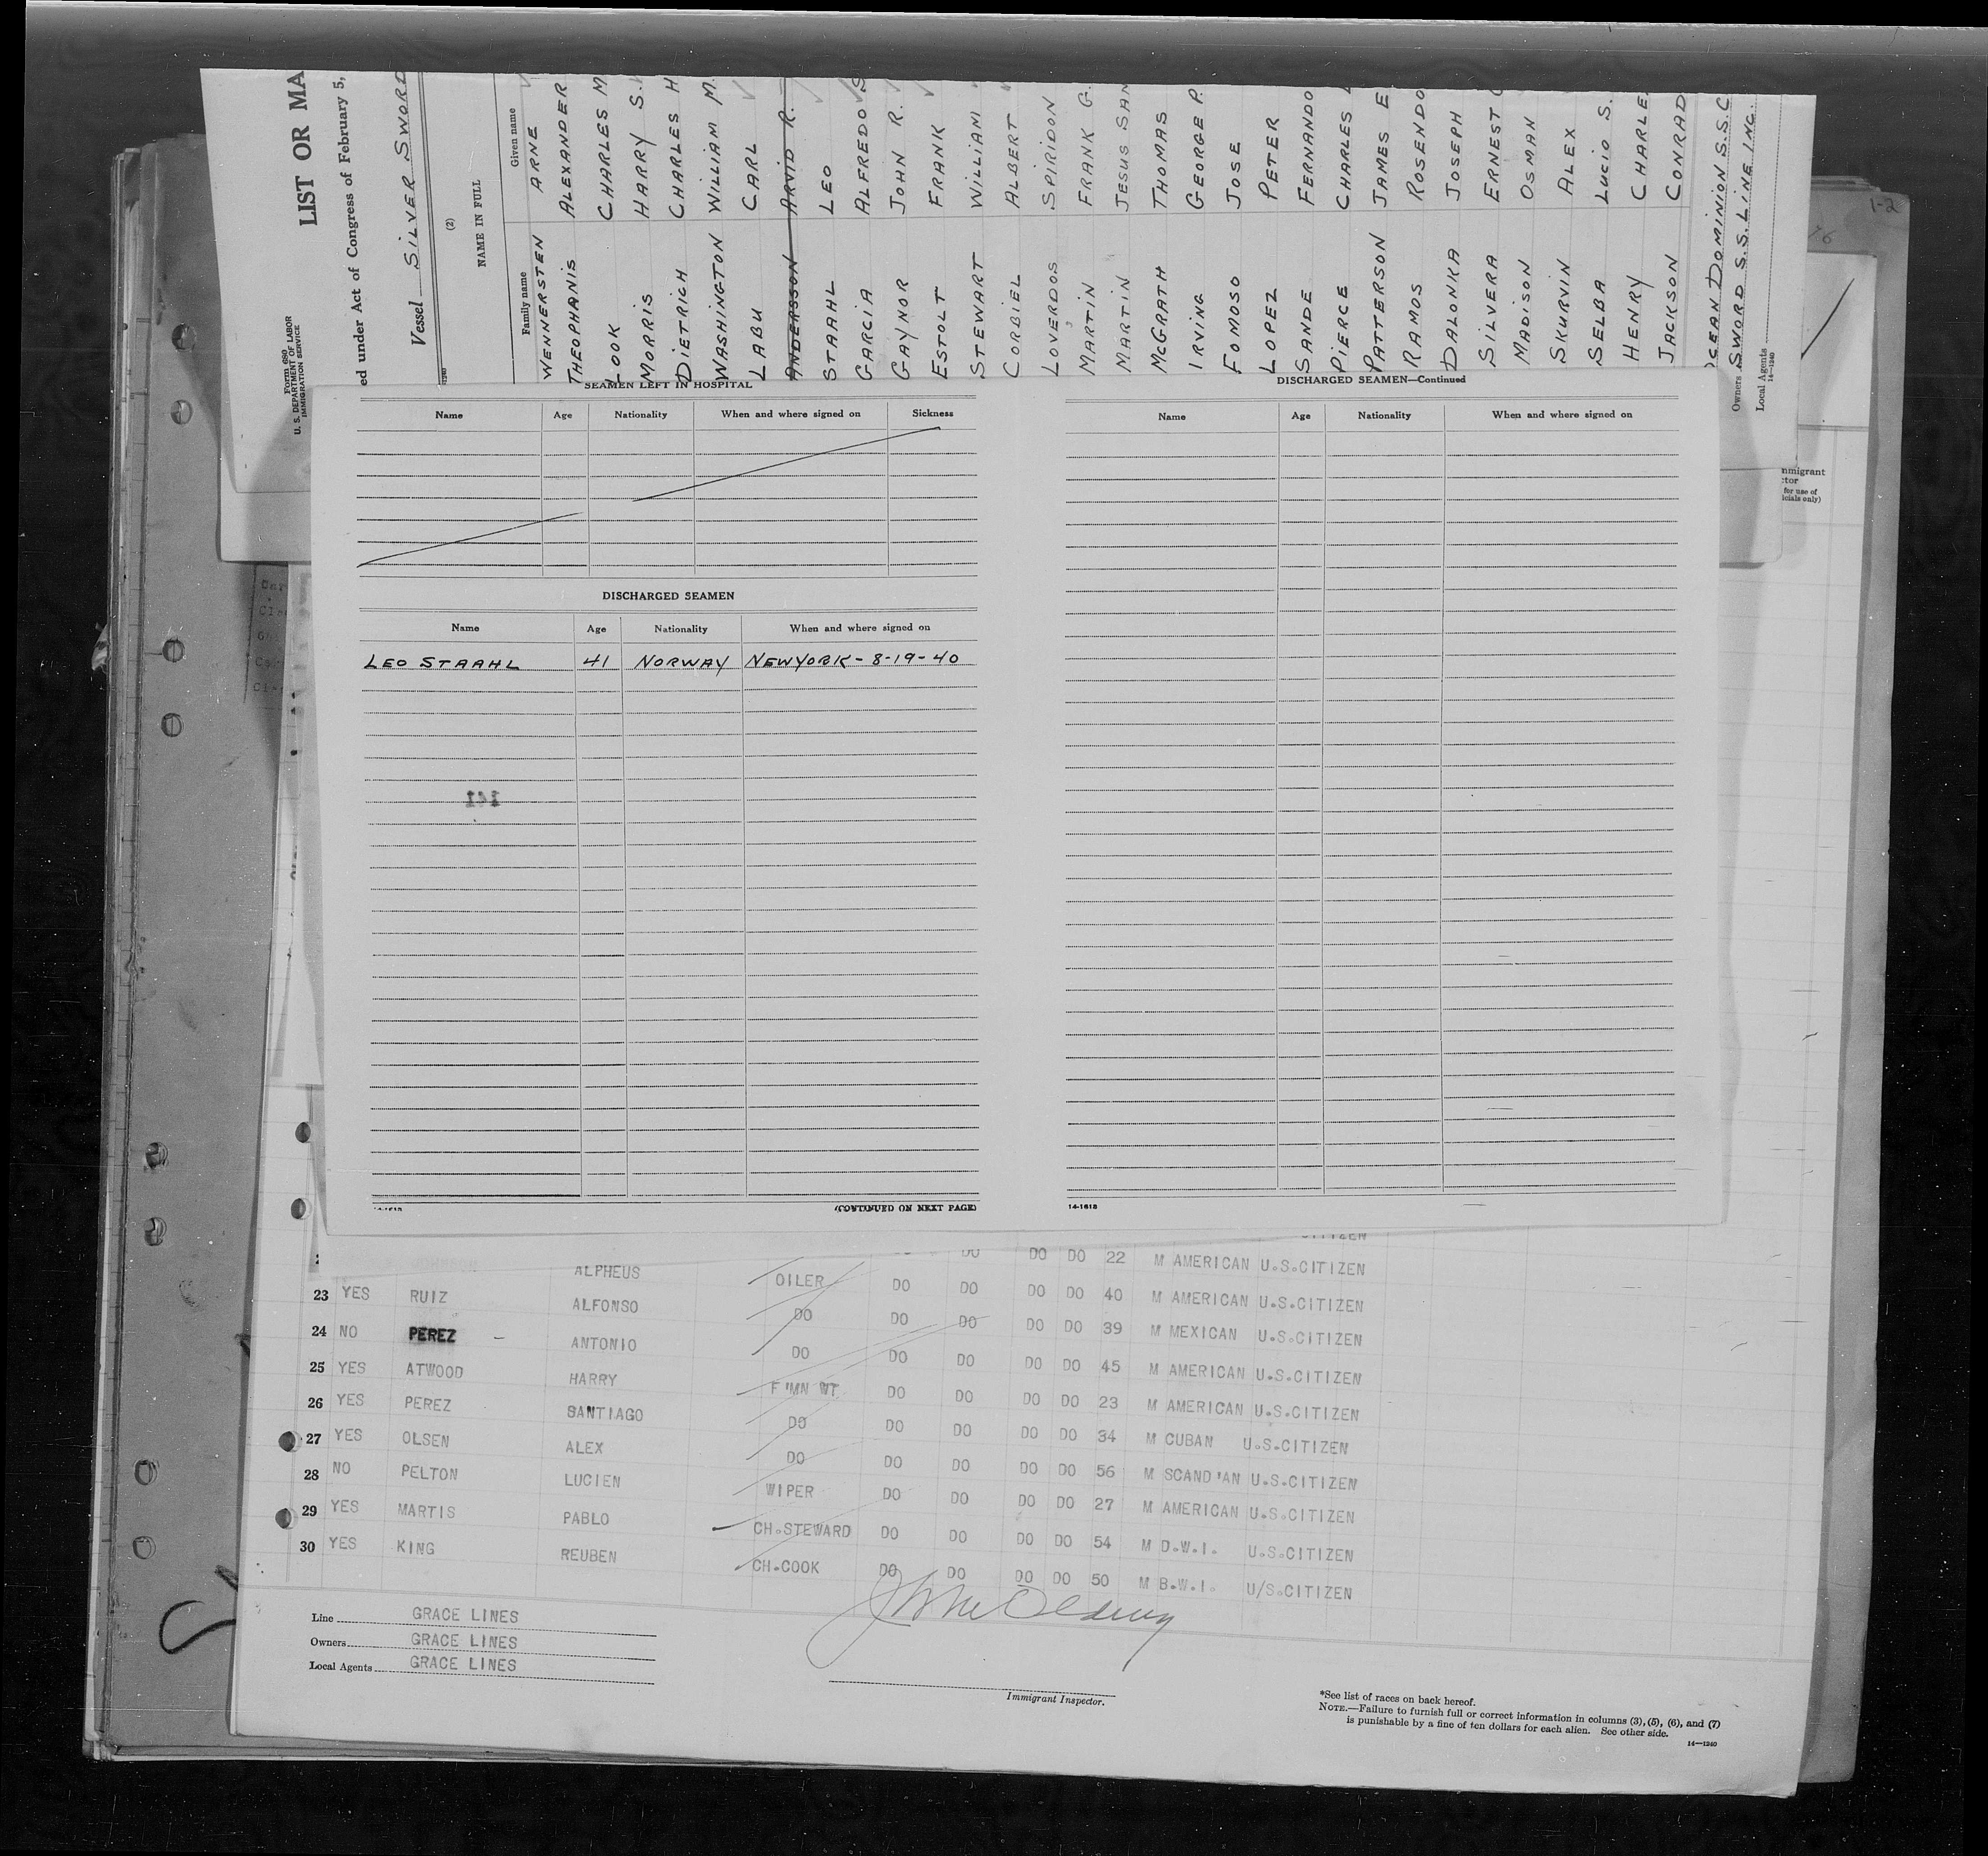 Form 680
U. S. DEPARTMENT OF LABOR
IMMIGRATION SERVICE
LIST OR MA
ed under Act of Congress of February 5,
Vessel SILVER SWORD
(2)
NAME IN FULL
Family name Given name
WENNERSTEN ARNE
THEOPHANIS ALEXANDER
LOOK CHARLES M
MORRIS HARRY S.
DIETRICH CHARLES H
WASHINGTON WILLIAM M.
LABU CARL
ANDERSSON ARVID R.
STAAHL LEO
GARCIA ALFREDO S
GAYNOR JOHN R.
ESTOLT FRANK
STEWART WILLIAM
CORBIEL ALBERT
LOVERDOS SPIRIDON
MARTIN FRANK G.
MARTIN JESUS SAN
McGRATH THOMAS
IRVING GEORGE P.
FOMOSO JOSE
LOPEZ PETER
SANDE FERNANDO
PIERCE CHARLES
PATTERSON JAMES E
RAMOS ROSENDO
DALONKA JOSEPH
SILVERA ERNEST
MADISON OSMAN
SKURVIN ALEX
SELBA LUCIO S.
HENRY CHARLE
JACKSON CONRAD
OCEAN DOMINION S.S.C
Owners SWORD S.S. LINE INC.
Local Agents
14—1240
1-2
mmigrant
ctor
for use of
icials only)
SEAMEN LEFT IN HOSPITAL
Name Age Nationality When and where signed on Sickness
DISCHARGED SEAMEN
Name Age Nationality When and where signed on
LEO STAAHL 41 NORWAY NEW YORK - 8-19-40
141
14-1618 (CONTINUED ON NEXT PAGE)
DISCHARGED SEAMEN—Continued
Name Age Nationality When and where signed on
14-1618
CITIZEN
ALPHEUS OILER DO DO DO DO 22 M AMERICAN U.S.CITIZEN
23 YES RUIZ ALFONSO DO DO DO DO DO 40 M AMERICAN U.S.CITIZEN
24 NO PEREZ – ANTONIO DO DO DO DO DO 39 M MEXICAN U.S.CITIZEN
25 YES ATWOOD HARRY F'MN WT DO DO DO DO 45 M AMERICAN U.S.CITIZEN
26 YES PEREZ SANTIAGO DO DO DO DO DO 23 M AMERICAN U.S.CITIZEN
27 YES OLSEN ALEX DO DO DO DO DO 34 M CUBAN U.S.CITIZEN
28 NO PELTON LUCIEN WIPER DO DO DO DO 56 M SCAND'AN U.S.CITIZEN
29 YES MARTIS PABLO CH.STEWARD DO DO DO DO 27 M AMERICAN U.S.CITIZEN
30 YES KING REUBEN CH.COOK DO DO DO DO 54 M D.W.I. U.S.CITIZEN
50 M B.W.I. U/S.CITIZEN
Line GRACE LINES
Owners GRACE LINES
Local Agents GRACE LINES
Immigrant Inspector.
*See list of races on back hereof.
NOTE.—Failure to furnish full or correct information in columns (3), (5), (6), and (7)
is punishable by a fine of ten dollars for each alien. See other side.
14—1240